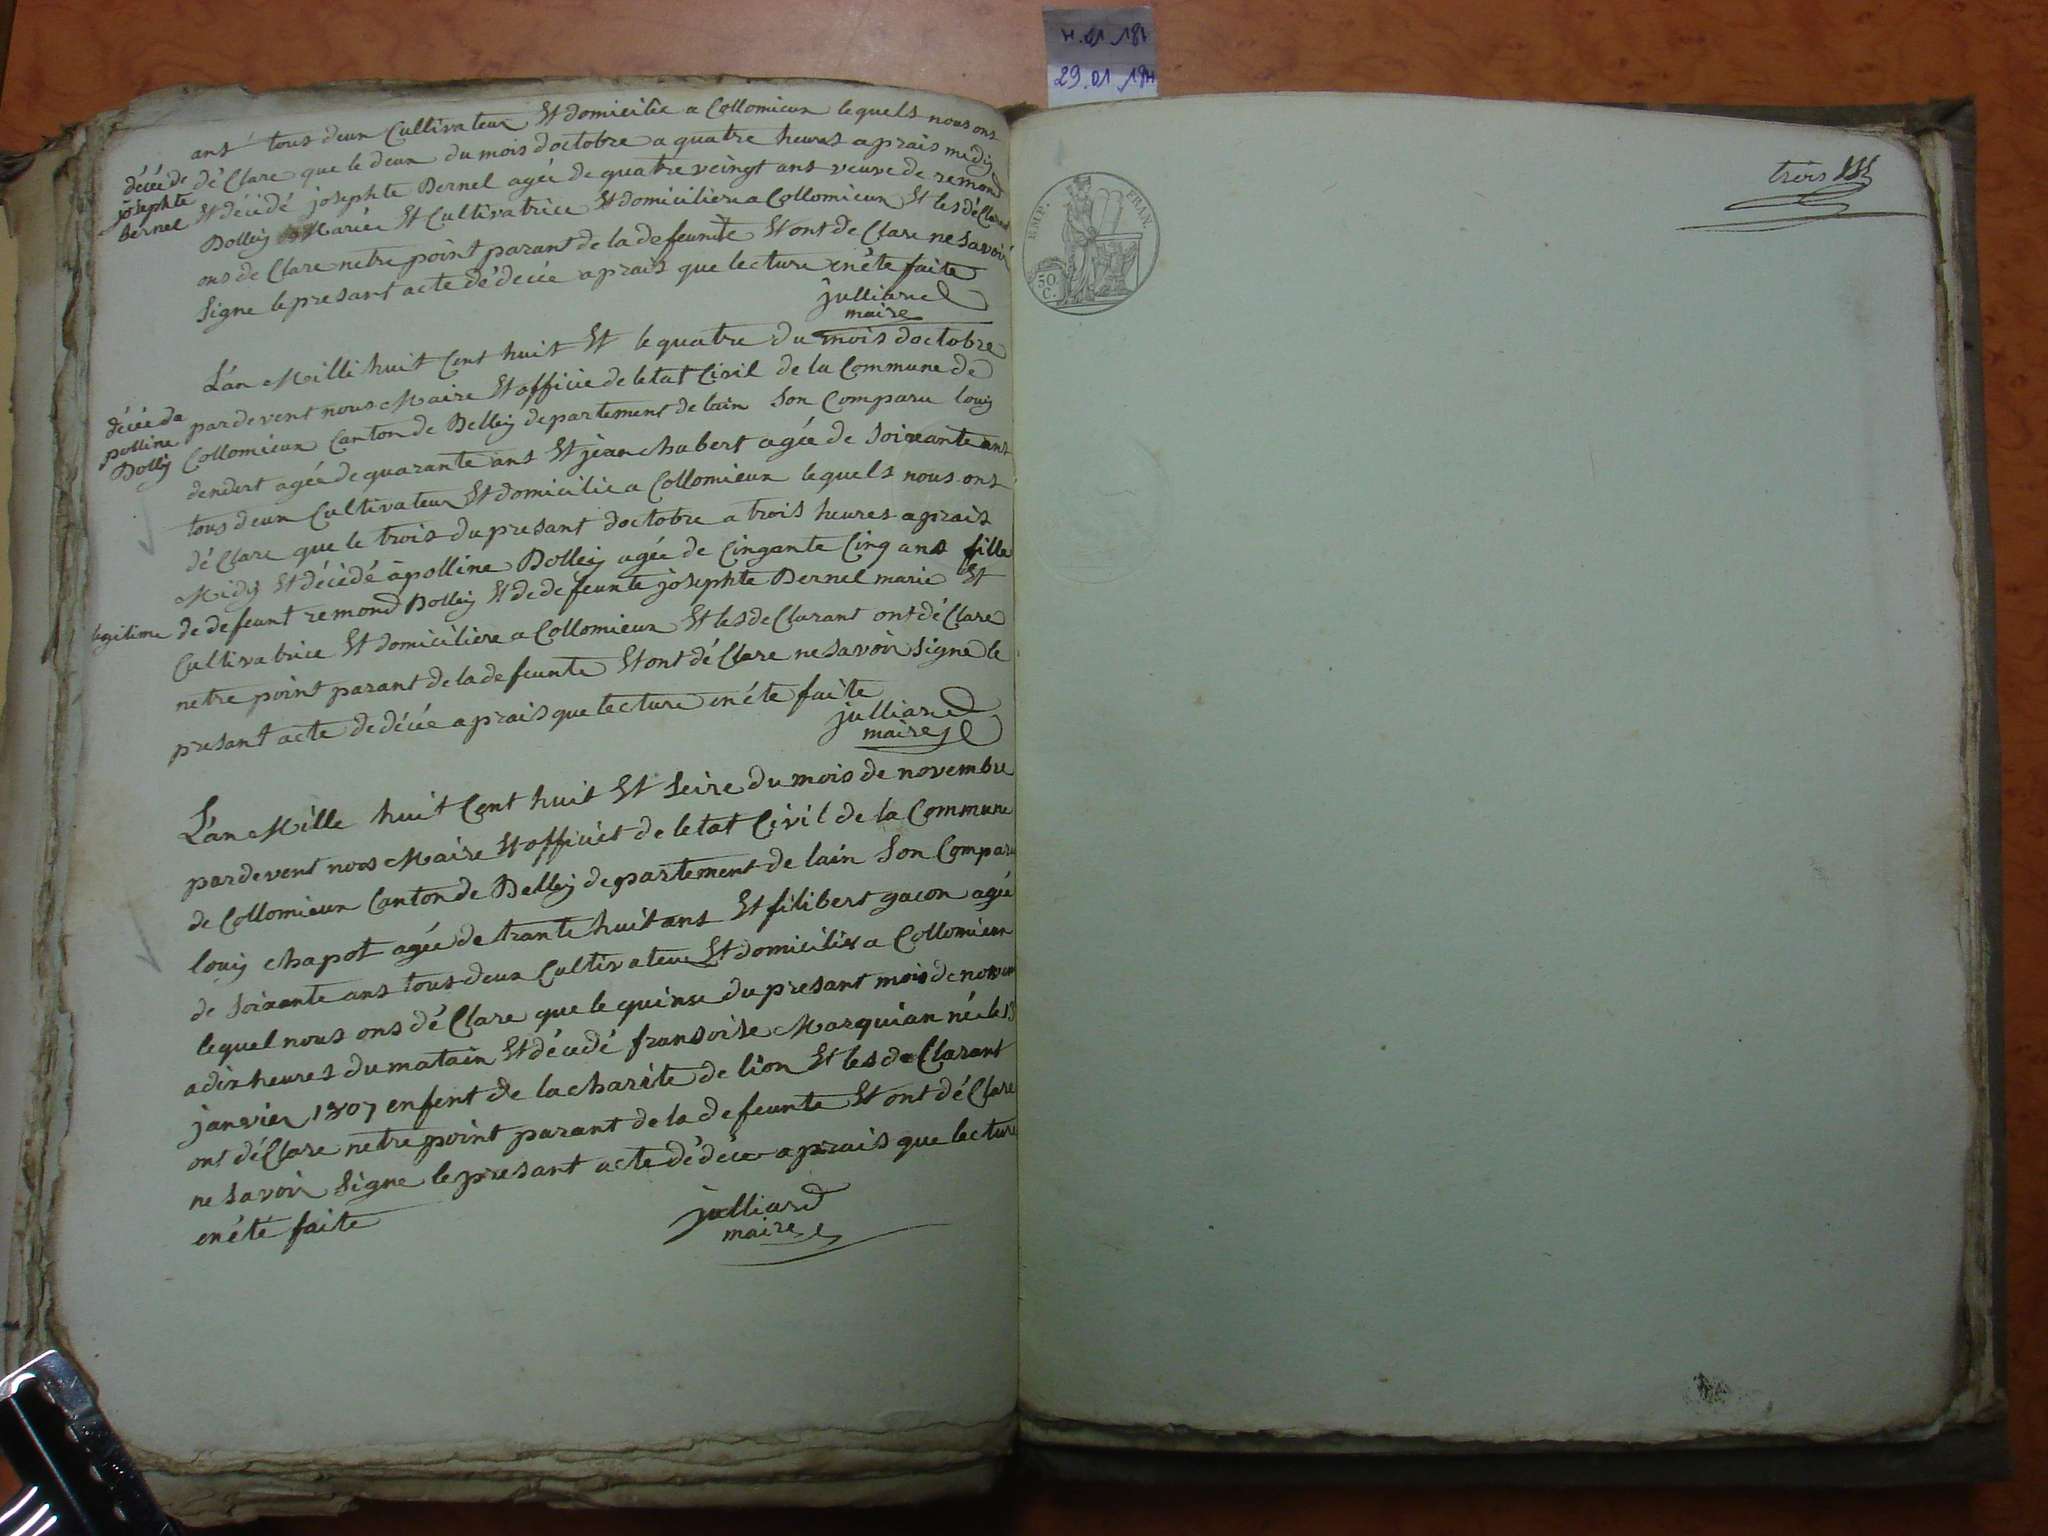 29.01.181
ans tous deux Cultivateur Et domicilié a Collomieux lequels nous ont
décée de
josephte
Bernel
dé Clare que le deux du mois doctobre a quatre heures aprais midy
Et décédé josephte Bernel agée de quatre veingt ans veuve de remond
Bolley Mariée Et Cultivatrice Et domiciliere a Collomieux Et les dé Clarant
ons de Clare netre point parant de la defeunte Et ont de Clare ne savoir
signe le presant acte dé décée aprais que lecture en éte faite
julliand
maire
décée da
polline
Bolly
L'an Mille huit Cent huit Et le quatre du mois doctobre
pardevent nous Maire Et officié de letat Civil de la Commune de
Collomieux Canton de Belley departement de lain Son Comparu louy
dendert agée de quarante ans Et jean chabert agée de Soixante ans
tous deux Cultivateur Et domicilié a Collomieux lequels nous ont
dé Clare que le trois du presant doctobre a trois heures aprais
Midy Et décédé apolline Bolley agée de Cinquante Cinq ans fille
legitime de defeunt remond Bolley Et de defeunte josephte Bernel marie Et
Cultivatrice Et domiciliere a Collomieux Et les de Clarant ont dé Clare
netre point parant de la defeunte Et ont dé Clare ne savoir signe le
presant acte de décée aprais que lecture en éte faite
julliand
maire
L'an Mille huit Cent huit Et seire du mois de novembre
pardevent nous Maire Et officiét de letat Civil de la Commune
de Collomieux Canton de Belley departement de lain Son Comparu
louy chapot agée de trante huit ans Et filibert gacon agée
de Soixante ans tous deux Cultivateur Et domicilier a Collomieux
lequel nous ons dé Clare que le quinse du presant mois de novem
a dix heures du matain Et décédé fransoise Marquian né le 13
janvier 1807 enfent de la charite de lion Et les de Clarant
ont dé Clare netre point parant de la defeunte Et ont dé Clare
ne savoir Signe le presant acte dé décée aprais que lecture
en été faite
julliand
maire
EMP. FRAN.
50
C.
trois